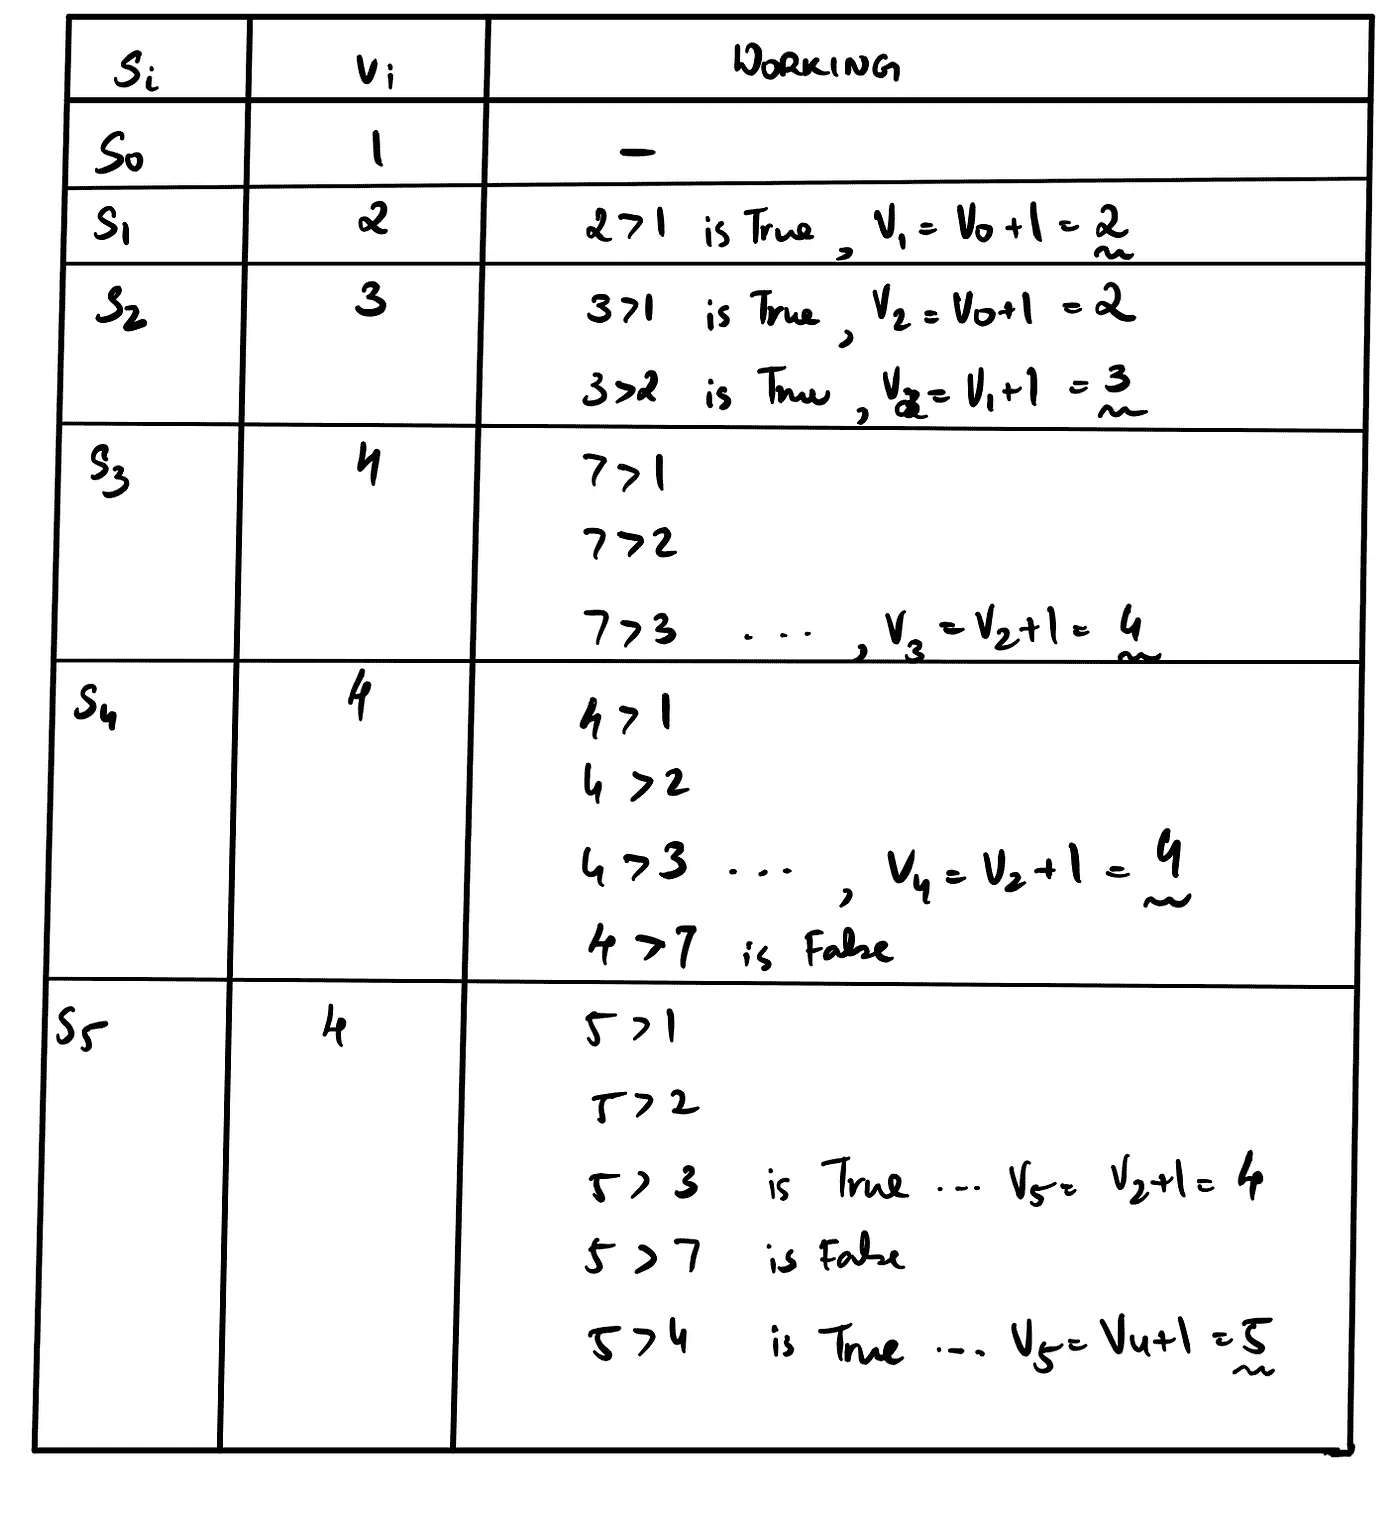 Si Vi WORKING
S0 1 -
S1 2 2>1 is True, V1 = V0+1 = 2
S2 3 3>1 is True, V2 = V0+1 = 2
3>2 is True, V2 = V1+1 = 3
S3 4 7>1
7>2
7>3 ..., V3 = V2+1 = 4
S4 4 4>1
4>2
4>3 ..., V4 = V2+1 = 4
4>7 is False
S5 4 5>1
5>2
5>3 is True ... V5 = V2+1 = 4
5>7 is False
5>4 is True ... V5 = V4+1 = 5